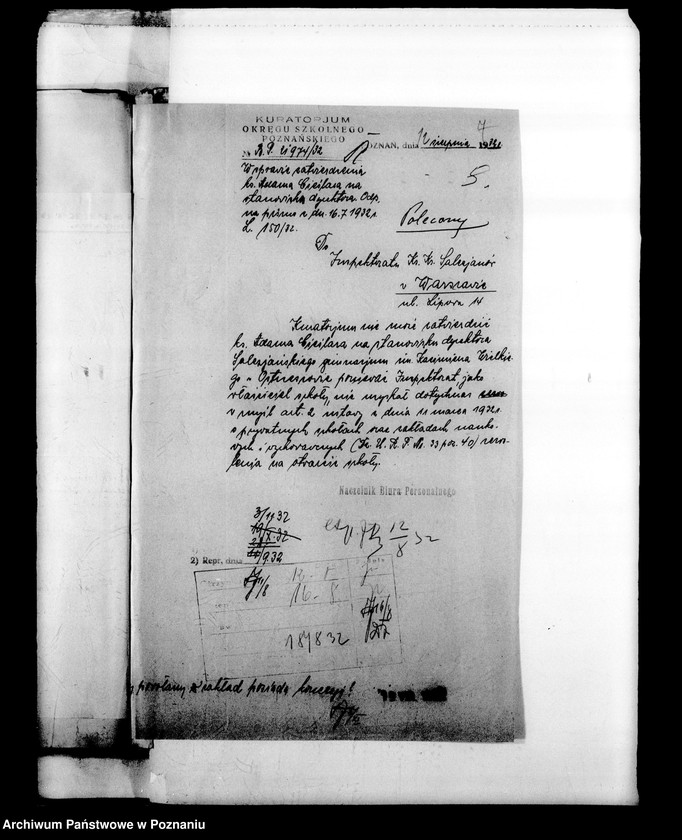 KURATORJUM
OKRĘGU SZKOLNEGO
POZNAŃSKIEGO
POZNAŃ, dnia 12 sierpnia 1932
7
№ B.P. 21974/32
5.
W sprawie zatwierdzenia
ks. Adama Cieślara na
stanowisku dyrektora. Odp.
na pismo z dn. 16.7.1932 r.
L. 150/32.
Polecony
Do
Inspektoratu Ks. Ks. Salezjanów
w Warszawie
ul. Lipowa 14
Kuratorjum nie może zatwierdzić
ks. Adama Cieślara na stanowisku dyrektora
Salezjańskiego gimnazjum im. Kazimierza Wielkie-
go w Ostrzeszowie ponieważ Inspektorat, jako
właściciel szkoły, nie uzyskał dotychczas
w myśl art. 2 ustawy z dnia 11 marca 1932 r.
o prywatnych szkołach oraz zakładach nauko-
wych i wychowawczych (Dz. U. R. P. Nr. 33 poz. 40) zezwo-
lenia na otwarcie szkoły.
Naczelnik Biura Personalnego
3/11 32
12/8 32
2) Repr. dnia 9.32
16-8
18/8 32
zakład posiada koncesję!
Archiwum Państwowe w Poznaniu